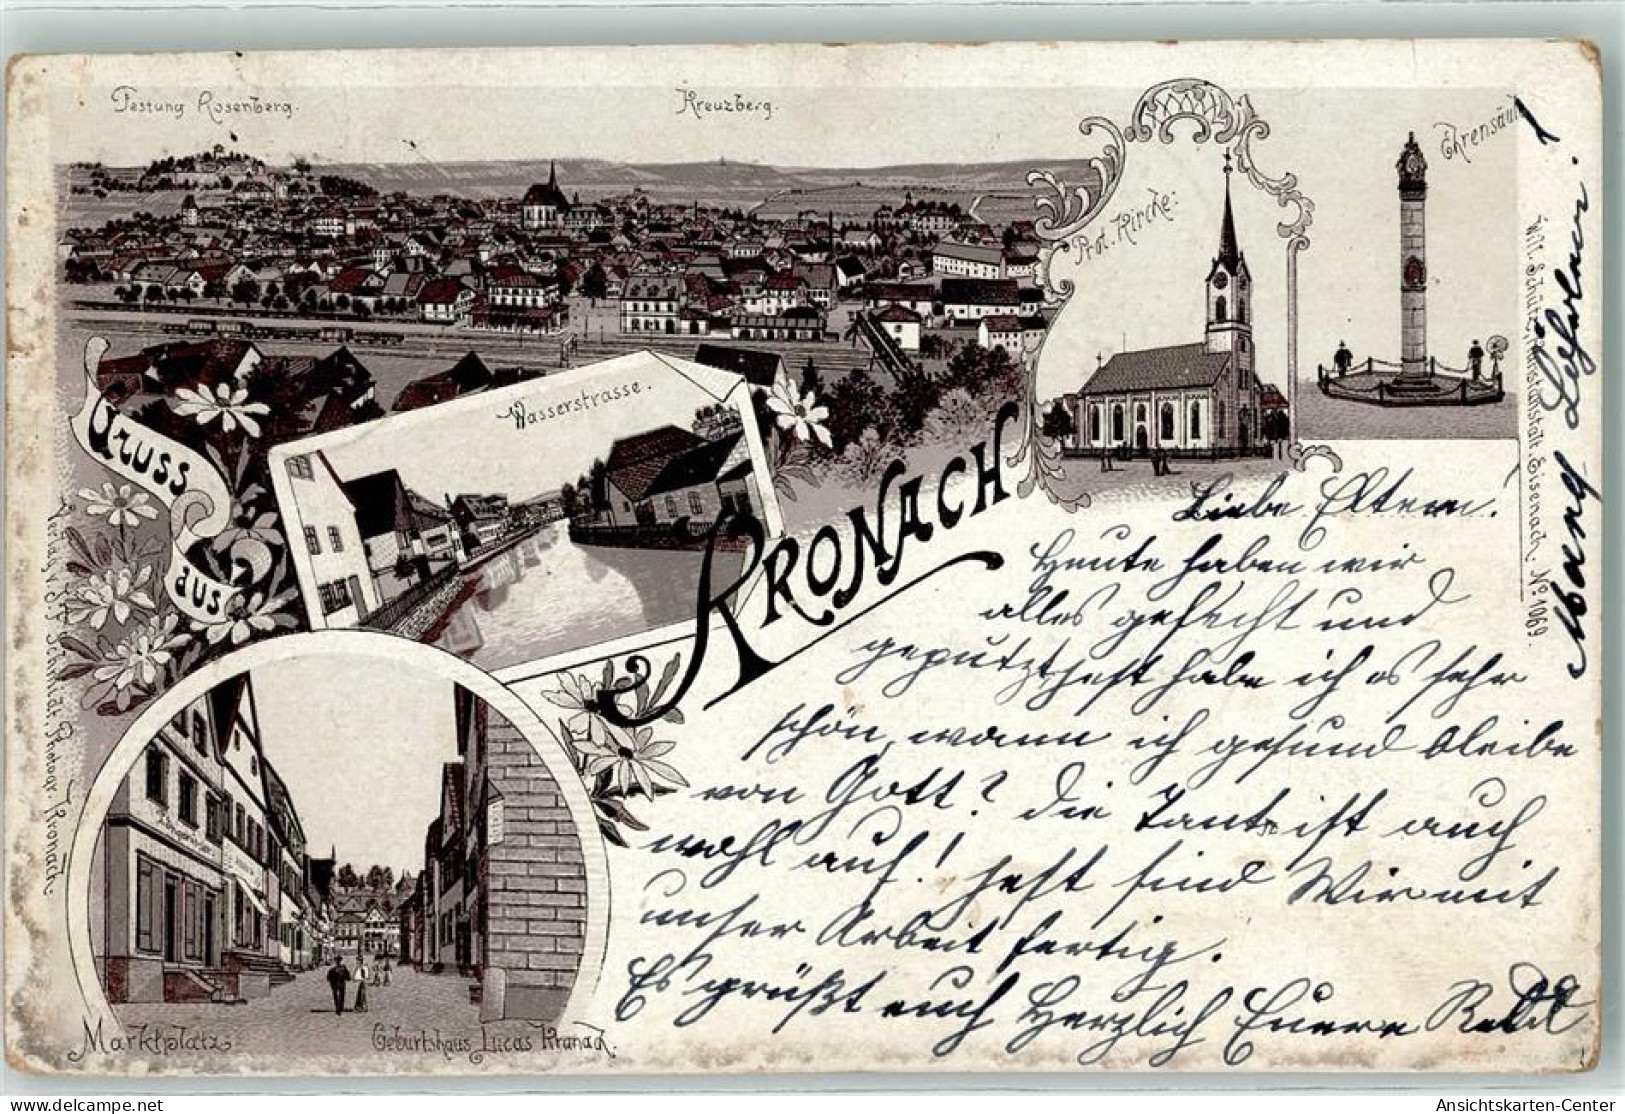 Festung Rosenberg.
Kreuzberg.
Ehrensäule
Prot. Kirche.
Wasserstrasse.
Gruss
aus
KRONACH
Marktplatz
Geburtshaus Lucas Kranach.
Verlag v. J. F. Schmidt, Photogr. Kronach.
Wilh. Schütz, Kunstanstalt Eisenach. No 1069.
Liebe Eltern!
Heute haben wir
alles gefecht und
geputzt jetzt habe ich es sehr
schön, wann ich gesund bleibe
von Gott? die Tante ist auch
wohl auf! jetzt sind Wir mit
unser Arbeit fertig.
Es grüßt euch Herzlich Euere
Ansichtskarten-Center